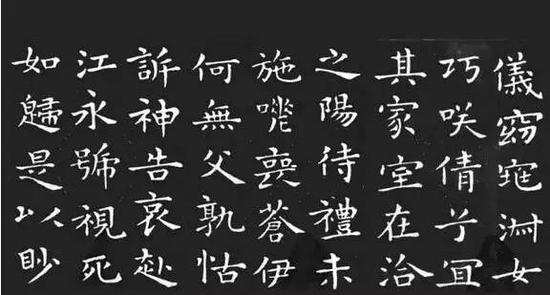 儀窈窕淑女
巧咲倩兮冝
其家室在洽
之陽待禮未
施嗟喪蒼伊
何無父孰怙
訴神告哀赴
江永號視死
如歸是以眇